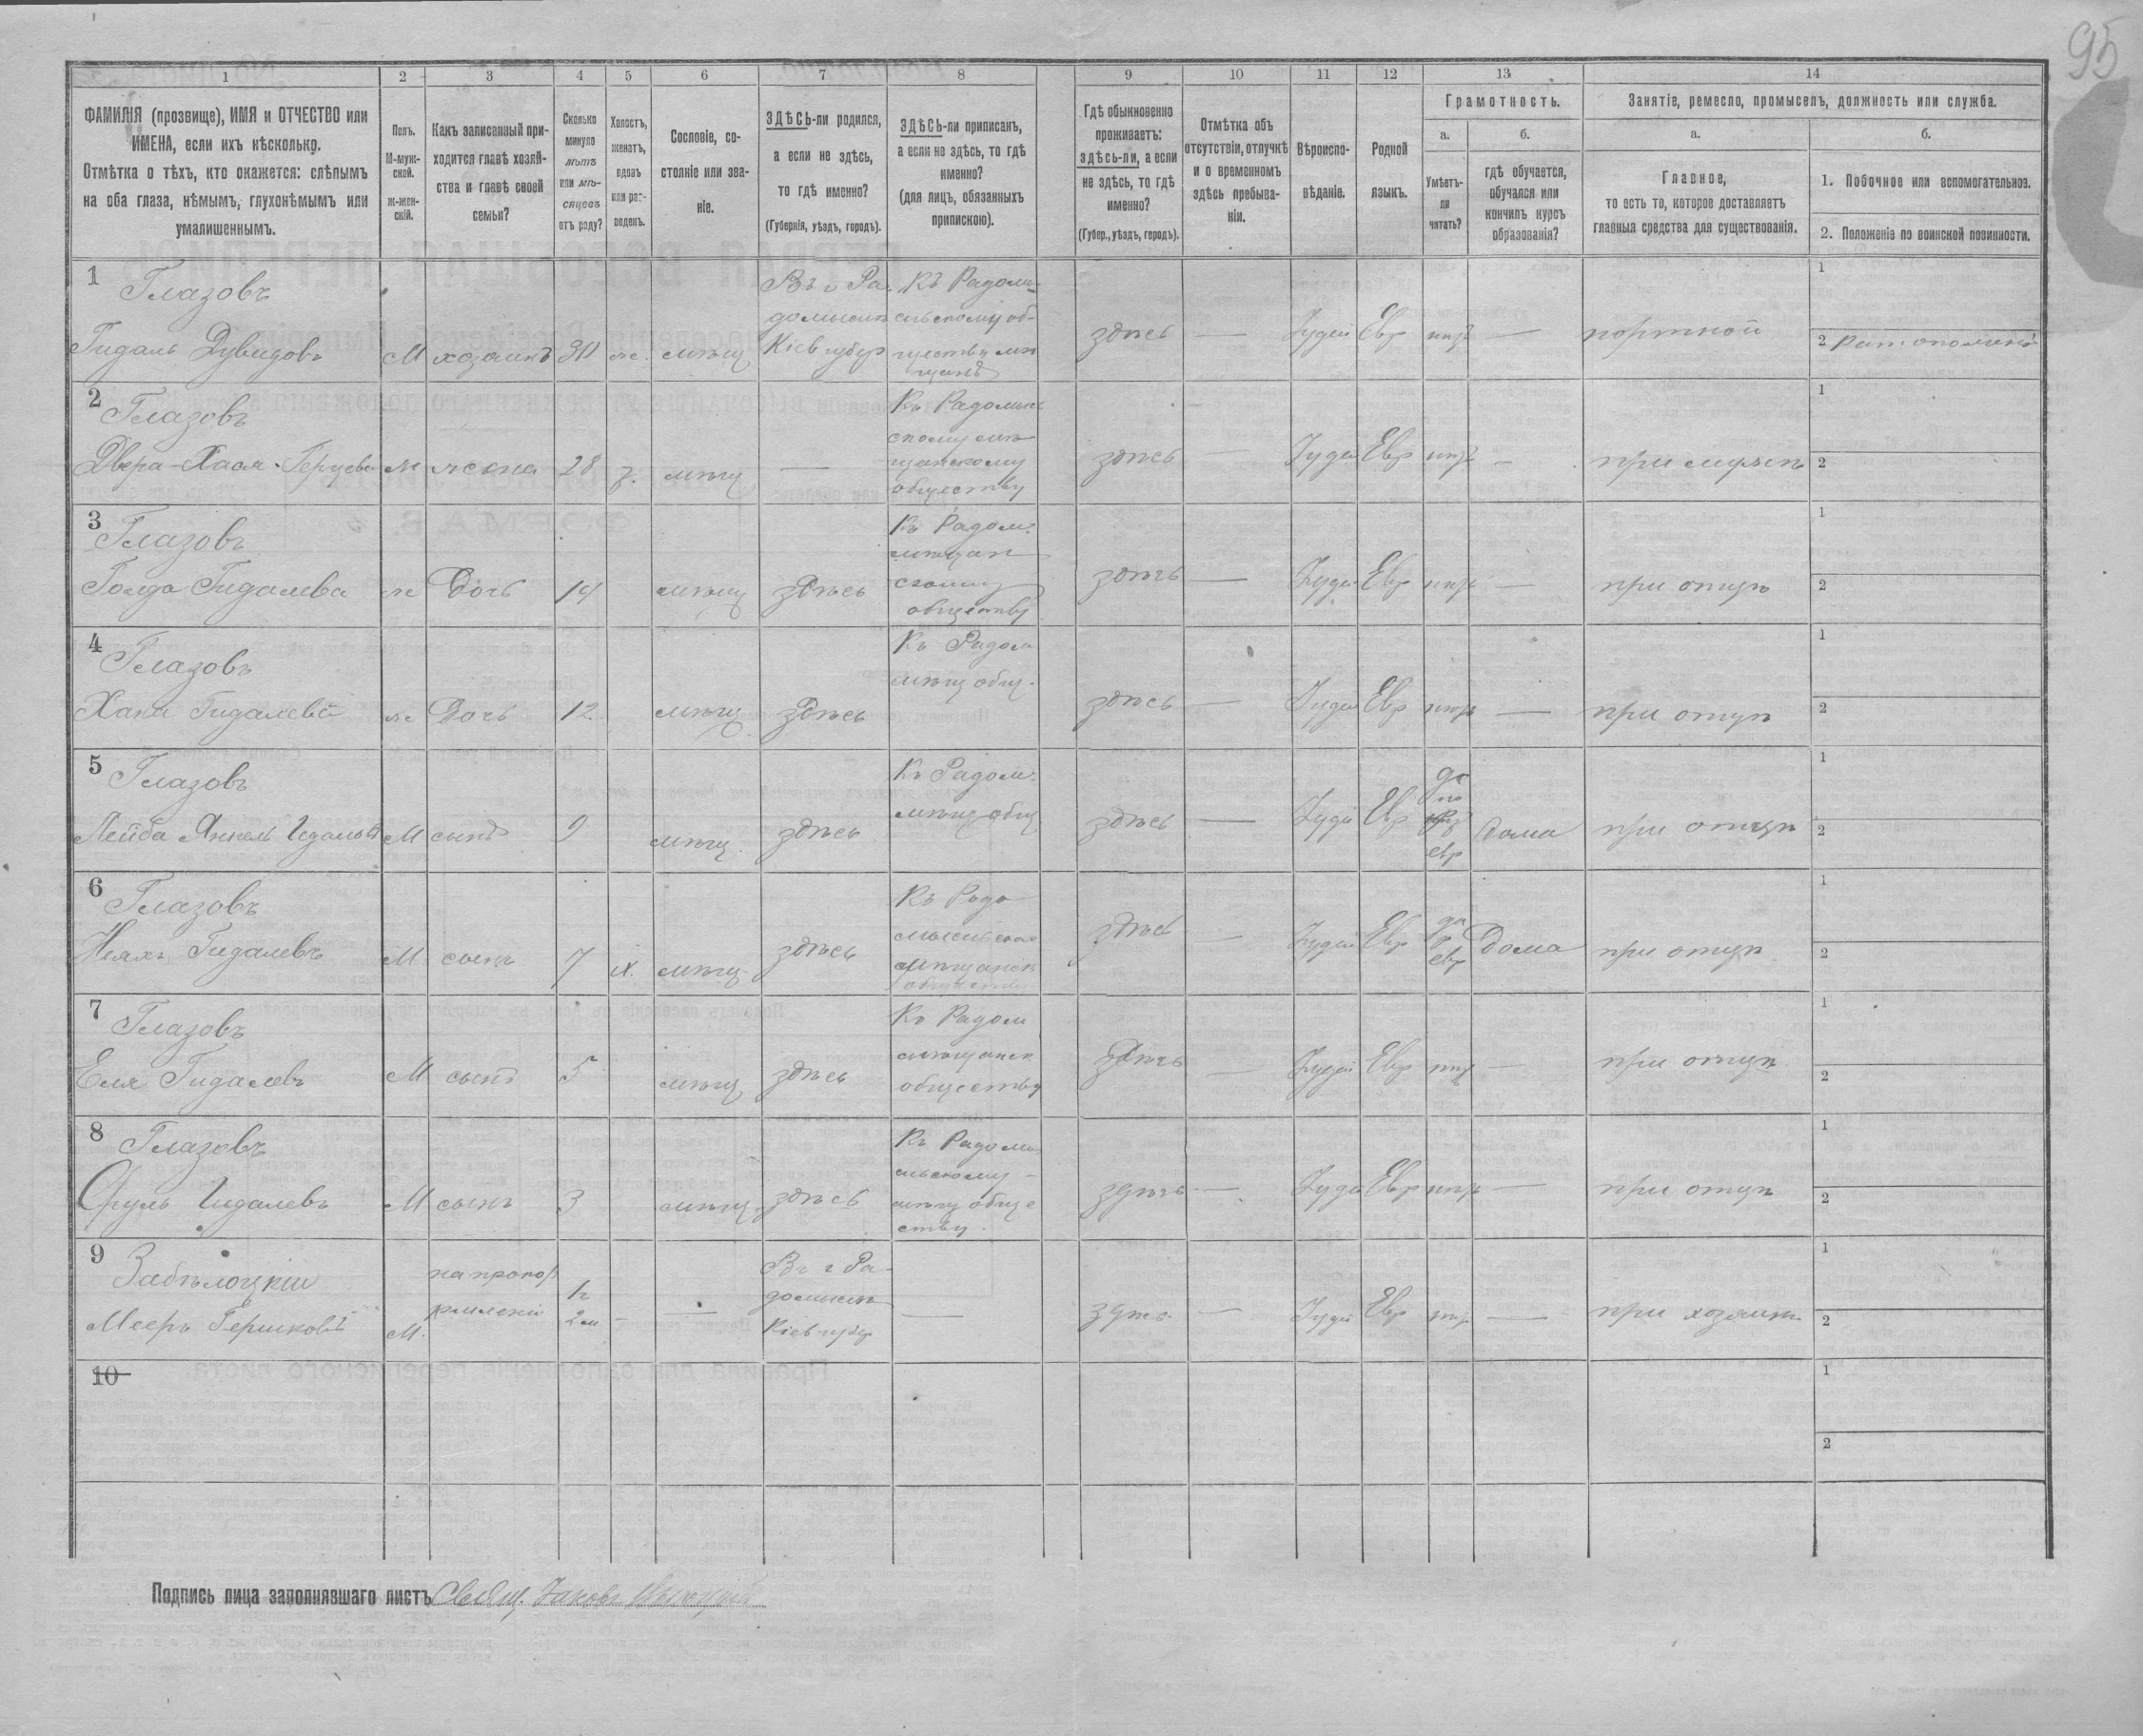 95
1 2 3 4 5 6 7 8 9 10 11 12 13 14
ФАМИЛІЯ (прозвище), ИМЯ и ОТЧЕСТВО или
ИМЕНА, если ихъ нѣсколько.
Отмѣтка о тѣхъ, кто окажется: слѣпымъ
на оба глаза, нѣмымъ, глухонѣмымъ или
умалишеннымъ.
Полъ.
М-муж-
ской.
Ж-жен-
скій.
Какъ записанный при-
ходится главѣ хозяй-
ства и главѣ своей
семьи?
Сколько
минуло
лѣтъ
или мѣ-
сяцевъ
отъ роду?
Холостъ,
женатъ,
вдовъ
или раз-
веденъ.
Сословіе, со-
стояніе или зва-
ніе.
ЗДѢСЬ-ли родился,
а если не здѣсь,
то гдѣ именно?
(Губернія, уѣздъ, городъ).
ЗДѢСЬ-ли приписанъ,
а если не здѣсь, то гдѣ
именно?
(для лицъ, обязанныхъ
припискою).
Гдѣ обыкновенно
проживаетъ:
здѣсь-ли, а если
не здѣсь, то гдѣ
именно?
(Губер., уѣздъ, городъ).
Отмѣтка объ
отсутствіи, отлучкѣ
и о временномъ
здѣсь пребыва-
ніи.
Вѣроиспо-
вѣданіе.
Родной
языкъ.
Грамотность.
а.
Умѣетъ-
ли
читать?
б.
гдѣ обучается,
обучался или
кончилъ курсъ
образованія?
Занятіе, ремесло, промыселъ, должность или служба.
а.
Главное,
то есть то, которое доставляетъ
главныя средства для существованія.
б.
1. Побочное или вспомогательное.
2. Положеніе по воинской повинности.
1 Глазовъ
Гидаль Дувидовъ М хозяинъ 30 ж. мѣщ
Въ г Ра-
домыслѣ
Кіев губер
Къ Радомы-
сльскому об-
ществу мѣ
щанъ
здѣсь — Іудей Евр нѣтъ — портной
1
2
2 Глазовъ
Двера-Хая Герцева ж жена 28 з. мѣщ —
Къ Радомысл
скому мѣ
щанскому
обществу
здѣсь — Іудей Евр нѣтъ — при мужѣ
1
2
3 Глазовъ
Голда Гидалева ж Дочь 14 мѣщ здѣсь
Къ Радом.
мѣщан
скому
обществу
здѣсь — Іудей Евр нѣтъ — при отцѣ
1
2
4 Глазовъ
Хана Гидалева ж Дочь 12 мѣщ здѣсь
Къ Радом
мѣщ общ.
здѣсь — Іудей Евр нѣтъ — при отцѣ
1
2
5 Глазовъ
Лейба Янкель Гидалевъ М сынъ 9 мѣщ. здѣсь
Къ Радом.
мѣщ общ
здѣсь — Іудей Евр
да
по
евр
дома при отцѣ
1
2
6 Глазовъ
Гидалевъ М сынъ 7 х. мѣщ здѣсь
Къ Радо
мысльско
мѣщанск
обществу
здѣсь — Іудей Евр
да
евр
дома при отцѣ
1
2
7 Глазовъ
Еля Гидалевъ М сынъ 5 мѣщ здѣсь
Къ Радом
мѣщанск
обществу
здѣсь — Іудей Евр нѣтъ — при отцѣ
1
2
8 Глазовъ
Сруль Гидалевъ М сынъ 3 мѣщ. здѣсь
Къ Радомы
сльскому
мѣщ обще
ству.
здѣсь — Іудей Евр нѣтъ — при отцѣ
1
2
9 Забѣлоцкій
Мееръ Гершковъ М.
на проко
рмленіи
2 м — —
Въ г Ра-
домыслѣ
Кіев губер
— здѣсь — Іудей Евр нѣтъ — при хозяинѣ
1
2
10
1
2
Подпись лица заполнявшаго листъ Свящ. Іаковъ